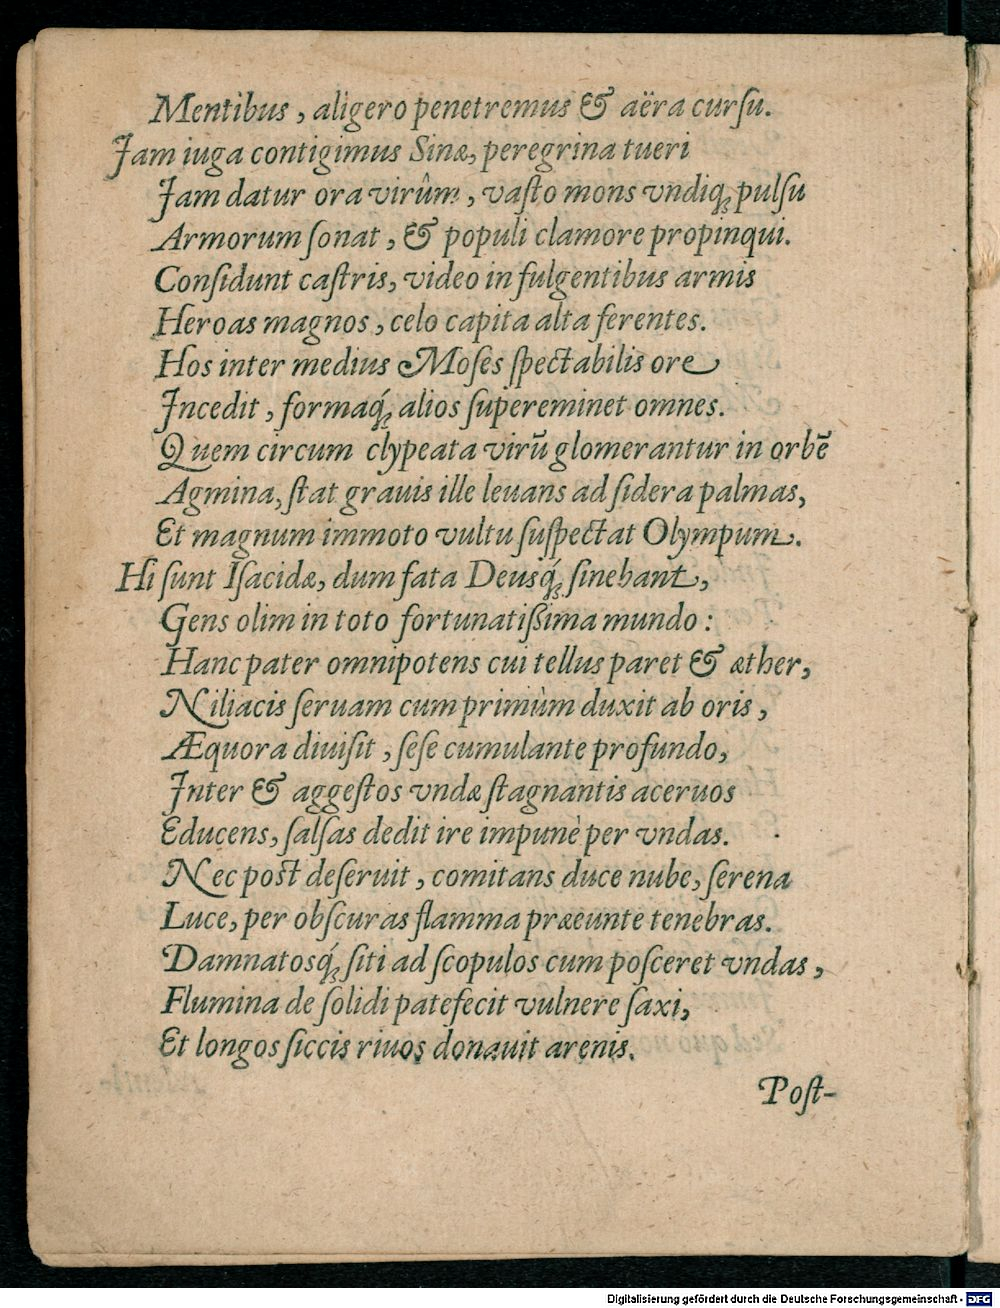 Mentibus, aligero penetremus & aëra cursu.
Jam iuga contigimus Sinæ, peregrina tueri
Jam datur ora virûm, vasto mons vndiq́; pulsu
Armorum sonat, & populi clamore propinqui.
Considunt castris, video in fulgentibus armis
Heroas magnos, celo capita alta ferentes.
Hos inter medius Moses spectabilis ore
Incedit, formaq́; alios supereminet omnes.
Quem circum clypeata virũ glomerantur in orbẽ
Agmina, stat grauis ille leuans ad sidera palmas,
Et magnum immoto vultu suspectat Olympum.
Hi sunt Isacidæ, dum fata Deusq́; sinebant,
Gens olim in toto fortunatißima mundo:
Hanc pater omnipotens cui tellus paret & æther,
Niliacis seruam cum primùm duxit ab oris,
Æquora diuisit, sese cumulante profundo,
Inter & aggestos vndæ stagnantis aceruos
Educens, salsas dedit ire impunè per vndas.
Nec post deseruit, comitans duce nube, serena
Luce, per obscuras flamma præeunte tenebras.
Damnatosq́; siti ad scopulos cum posceret vndas,
Flumina de solidi patefecit vulnere saxi,
Et longos siccis riuos donauit arenis.
Post-
Digitalisierung gefördert durch die Deutsche Forschungsgemeinschaft - DFG